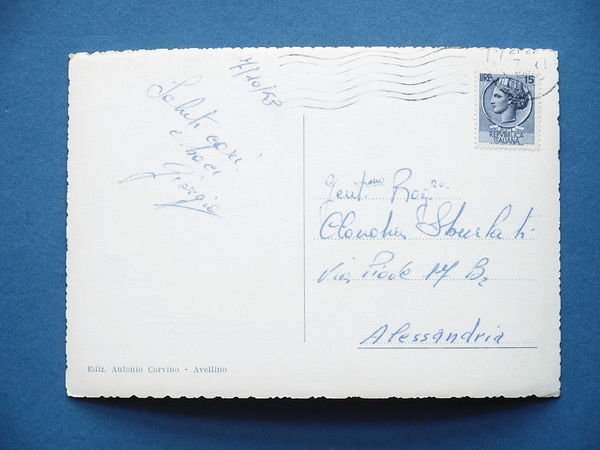 7/10/53
Saluti cari
e baci
Giorgio
LIRE 15
REPVBBLICA
ITALIANA
Gent.ma Rag.
Claudia
Via 17 B2
Alessandria
Ediz. Antonio Corvino - Avellino